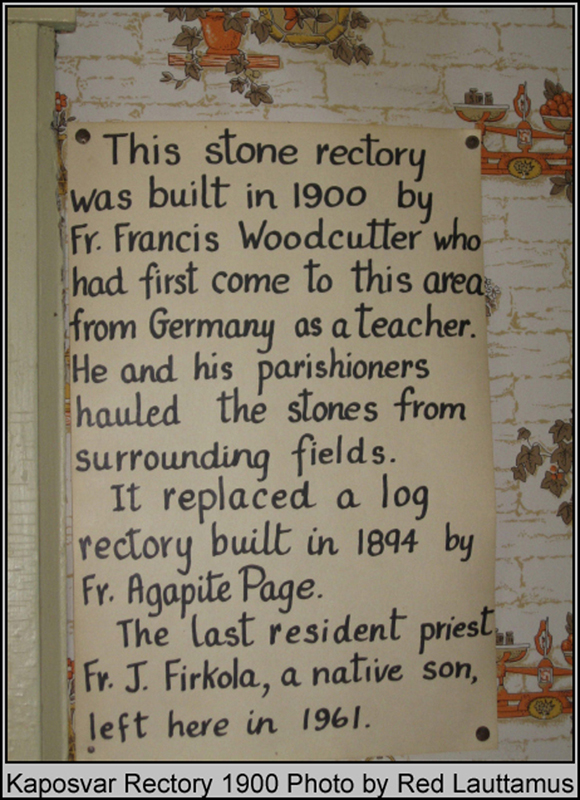 This stone rectory
was built in 1900 by
Fr. Francis Woodcutter who
had first come to this area
from Germany as a teacher.
He and his parishioners
hauled the stones from
surrounding fields.
It replaced a log
rectory built in 1894 by
Fr. Agapite Page.
The last resident priest
Fr. J. Firkola, a native son,
left here in 1961.
Kaposvar Rectory 1900 Photo by Red Lauttamus